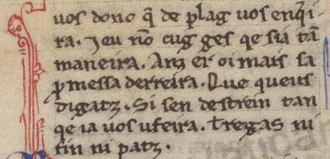 uos donc q̄ de plag uos enq̄i
ra. Ieu nō cug ges qe sia tā
maneira. Anz er oi mais sa
p̄messa derreira. Que queus
digatz. Si sen destrein tan
qe ia uos ufeira. tregas ni
fin ni patz.